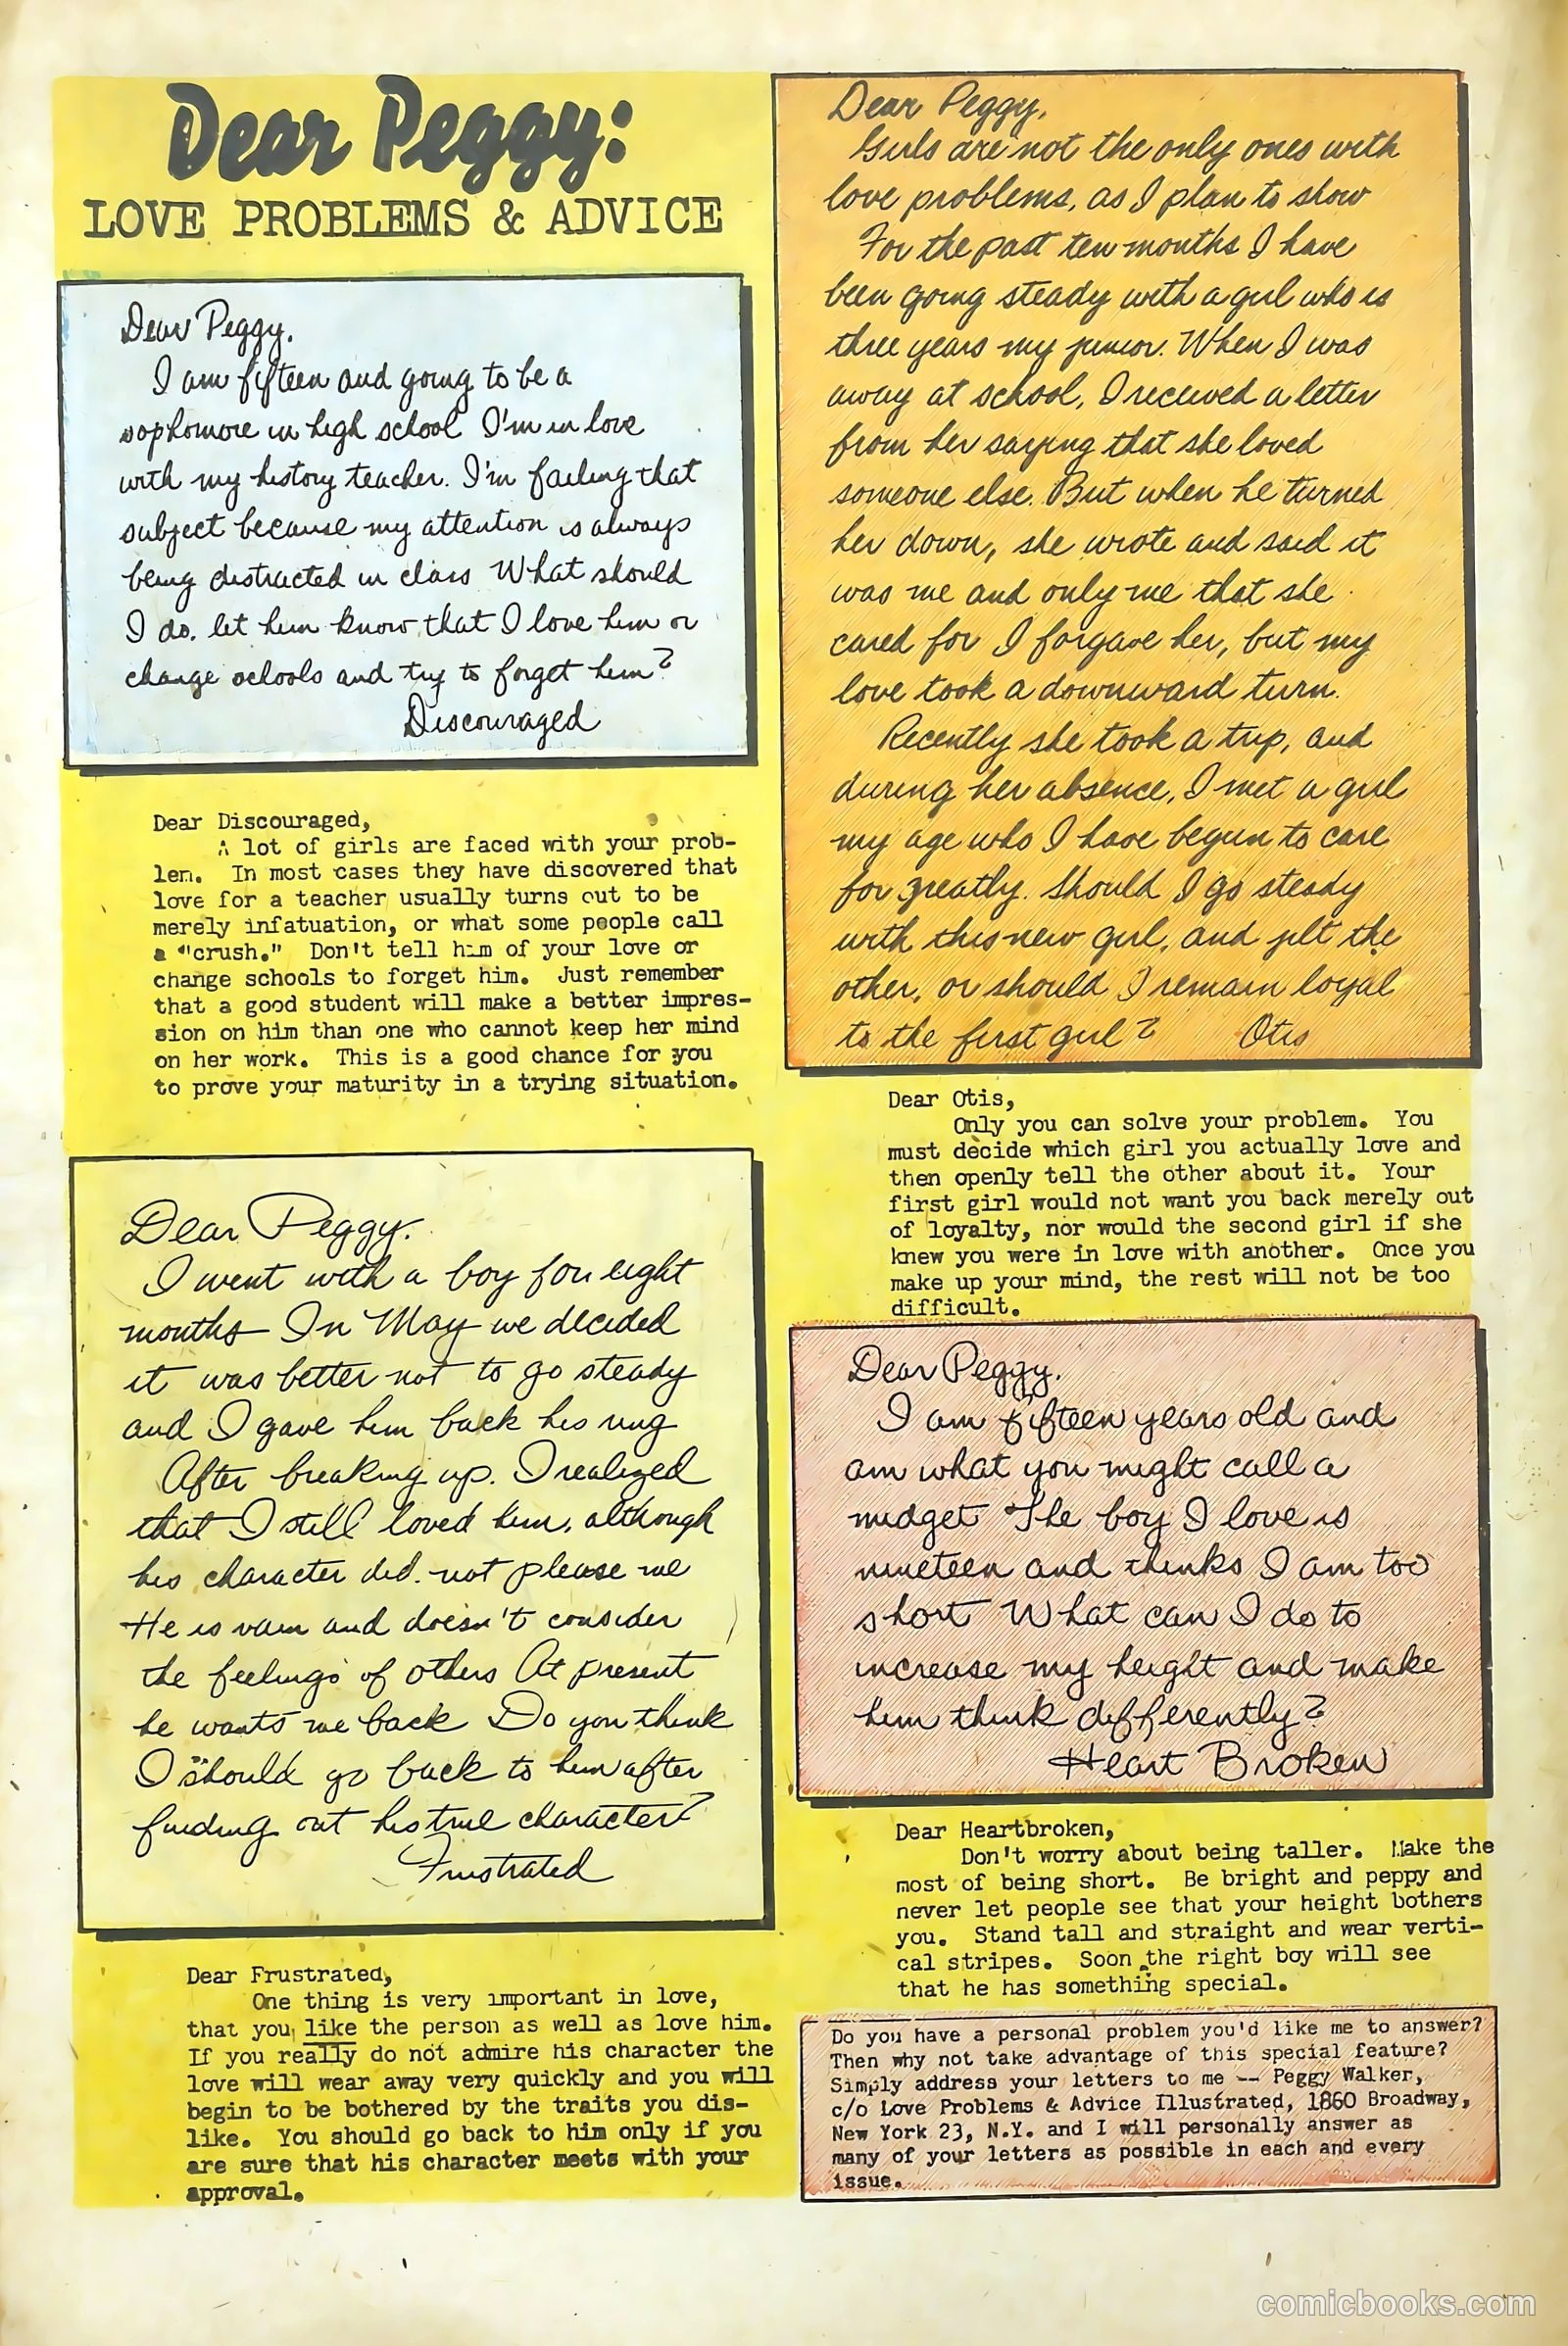 Dear Peggy:
LOVE PROBLEMS & ADVICE
Dear Peggy,
I am fifteen and going to be a
sophomore in high school I'm in love
with my history teacher. I'm failing that
subject because my attention is always
being distracted in class What should
I do, let him know that I love him or
change schools and try to forget him?
Discouraged
Dear Discouraged,
A lot of girls are faced with your prob-
lem. In most cases they have discovered that
love for a teacher usually turns out to be
merely infatuation, or what some people call
a "crush." Don't tell him of your love or
change schools to forget him. Just remember
that a good student will make a better impres-
sion on him than one who cannot keep her mind
on her work. This is a good chance for you
to prove your maturity in a trying situation.
Dear Peggy.
I went with a boy for eight
months In May we decided
it was better not to go steady
and I gave him back his ring
After breaking up. I realized
that I still loved him, although
his character did not please me
He is vain and doesn't consider
the feelings of others At present
he wants me back Do you think
I should go back to him after
finding out his true character?
Frustrated
Dear Frustrated,
One thing is very important in love,
that you like the person as well as love him.
If you really do not admire his character the
love will wear away very quickly and you will
begin to be bothered by the traits you dis-
like. You should go back to him only if you
are sure that his character meets with your
approval.
Dear Peggy,
Girls are not the only ones with
love problems, as I plan to show
For the past ten months I have
been going steady with a girl who is
three years my junior. When I was
away at school, I received a letter
from her saying that she loved
someone else. But when he turned
her down, she wrote and said it
was me and only me that she
cared for I forgave her, but my
love took a downward turn.
Recently she took a trip, and
during her absence, I met a girl
my age who I have begun to care
for greatly. Should I go steady
with this new girl, and jilt the
other, or should I remain loyal
to the first girl? Otis
Dear Otis,
Only you can solve your problem. You
must decide which girl you actually love and
then openly tell the other about it. Your
first girl would not want you back merely out
of loyalty, nor would the second girl if she
knew you were in love with another. Once you
make up your mind, the rest will not be too
difficult.
Dear Peggy.
I am fifteen years old and
am what you might call a
midget The boy I love is
nineteen and thinks I am too
short What can I do to
increase my height and make
him think differently?
Heart Broken
Dear Heartbroken,
Don't worry about being taller. Make the
most of being short. Be bright and peppy and
never let people see that your height bothers
you. Stand tall and straight and wear verti-
cal stripes. Soon the right boy will see
that he has something special.
Do you have a personal problem you'd like me to answer?
Then why not take advantage of this special feature?
Simply address your letters to me -- Peggy Walker,
c/o Love Problems & Advice Illustrated, 1860 Broadway,
New York 23, N.Y. and I will personally answer as
many of your letters as possible in each and every
issue.
comicbooks.com